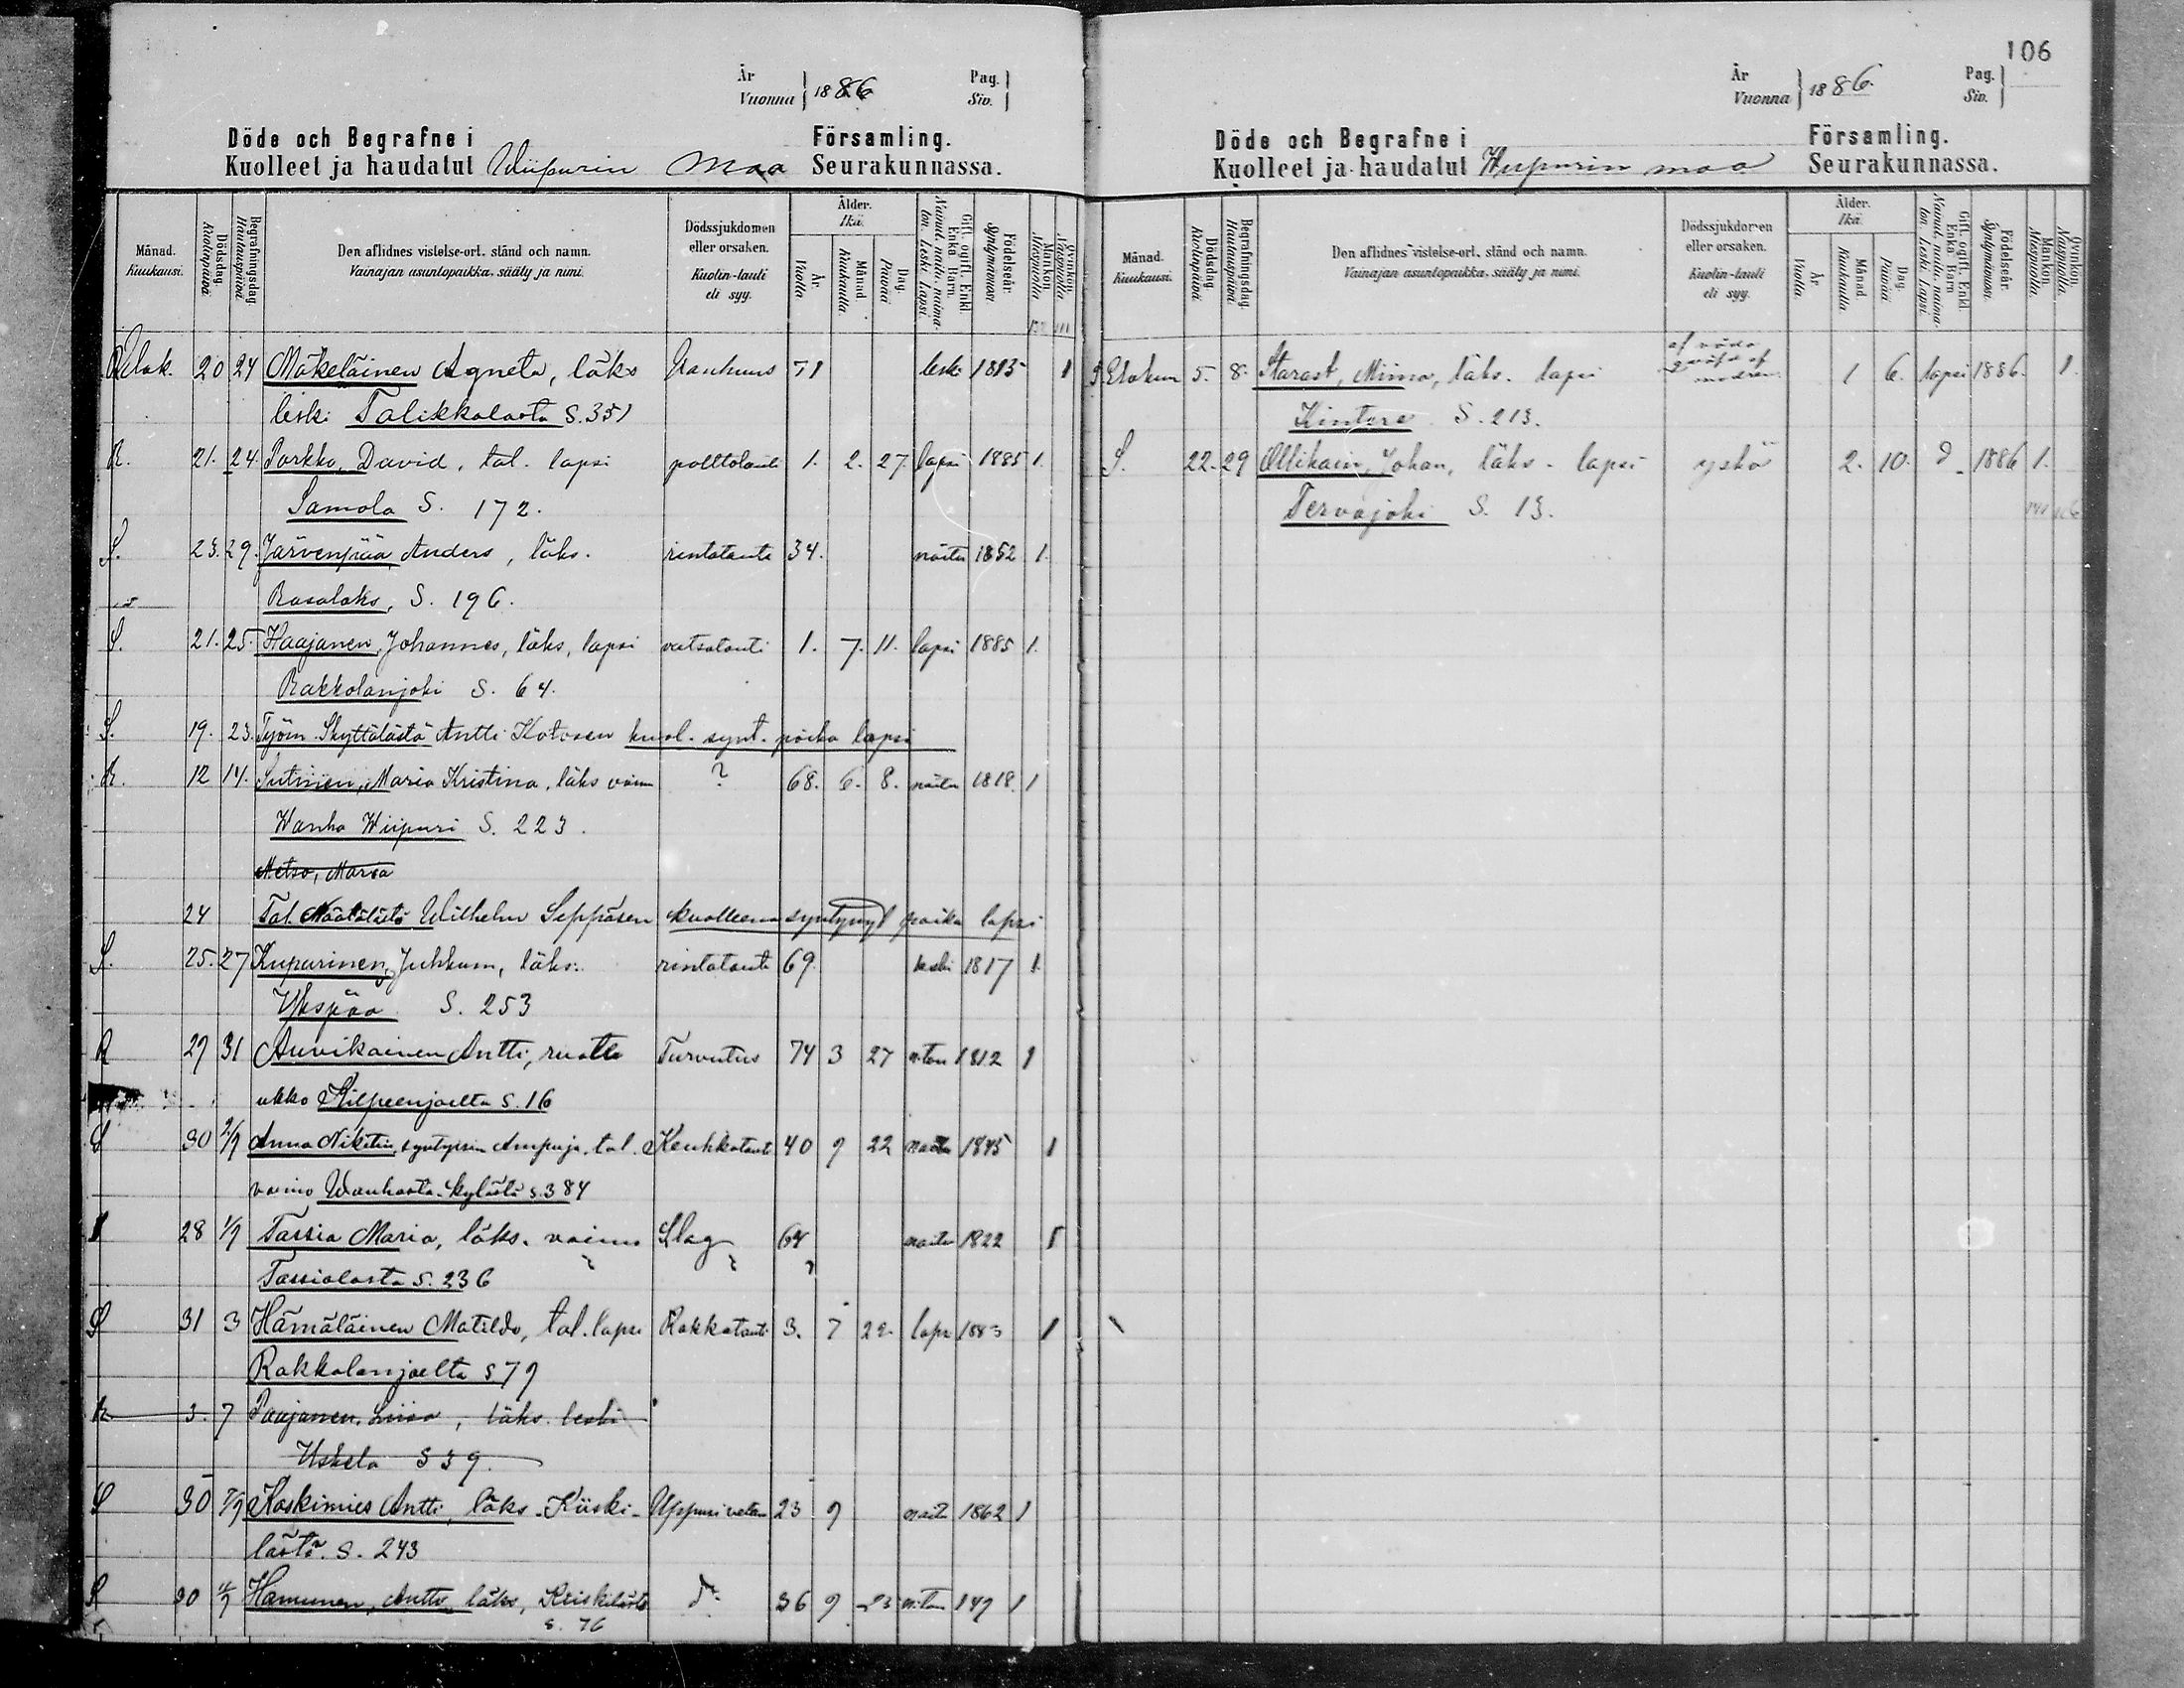 År
Vuonna } 1886
Pag.
Siv. }
Döde och Begrafne i Församling.
Kuolleet ja haudatut Wiipurin Maa Seurakunnassa.
Månad. Kuukausi.
Dödsdag. Kuolinpäivä.
Begrafningsdag. Hautauspäivä.
Den aflidnes vistelse-ort, stånd och namn.
Vainajan asuntopaikka, sääty ja nimi.
Dödssjukdomen eller orsaken.
Kuolin-tauti eli syy.
Ålder. Ikä.
År. Vuotta
Månad. Kuukautta
Dag. Päivää
Gift, ogift, Enkl. Enka. Barn.
Nainut, naitu, naimaton. Leski. Lapsi.
Födelseår. Syntymävuosi.
Mankön. Miespuolia
Qvinkön. Naispuolia
Elok. 20 24 Mäkeläinen Agneta, läks Vanhuus 71 leski 1815 1
leski Talikkalasta S. 351
R. 21. 24. Parkko, David, tal. lapsi polttotauti 1. 2. 27. lapsi 1885 1.
Samola S. 172.
S. 23. 29. Järvenpää, Anders, läks. rintatauti 34. naitu 1852 1.
Rasalaks, S. 196.
S. 21. 25. Haajanen, Johannes, läks, lapsi vatsatauti 1. 7. 11. lapsi 1885 1.
Rakkolanjoki S. 64.
S. 19. 23. Työm. Skyttälästä Antti Kotosen kuol. synt. poika lapsi
R. 12 14. Sutinen, Maria Kristina, läks vaim ? 68. 6. 8. naitu 1818. 1
Wanha Wiipuri S. 223.
Metso, Maria
24 Tal. Näätälästä Wilhelm Seppäsen kuolleena syntynyt poika lapsi
S. 25. 27 Kupurinen, Juhkum, läks. rintatauti 69. leski 1817 1.
Ykspää S. 253
R 29 31 Auvikainen Antti, ruotu Turvutus 74 3 27 n:ton 1812 1
ukko Kilpeenjoelta S. 16
S 30 2/9 Anna Nikitin, syntyisin Ampuja, tal. Keuhkotauti 40 9 22 naitu 1845 1
vaimo Wanhasta-kylästä s. 384
28 1/9 Tassia Maria, läks. vaimo Slag 64 naitu 1822 1
Tassialasta S. 236
S 31 3 Hämäläinen Matilda, tal. lapsi Rokkotauti 3. 7 22. laps 1883 1
Rakkolanjoelta S 79
R 3. 7 Paajanen, Liisa, läks. leski
Uskela S 39.
S 30 7/9 Koskimies Antti, läks. Kiiski- Uppusi veteen 23 9 nait 1862 1
lästä. S. 243
S 30 Hamunen, Antti, läks, Kiiskilästä d:o 36 9 23 n:ton 1
S. 76
106
År
Vuonna } 1886.
Pag.
Siv. }
Döde och Begrafne i Församling.
Kuolleet ja haudatut Wiipurin maa Seurakunnassa.
Månad. Kuukausi.
Dödsdag. Kuolinpäivä.
Begrafningsdag. Hautauspäivä.
Den aflidnes vistelse-ort, stånd och namn.
Vainajan asuntopaikka, sääty ja nimi.
Dödssjukdomen eller orsaken.
Kuolin-tauti eli syy.
Ålder. Ikä.
År. Vuotta.
Månad. Kuukautta.
Dag. Päivää.
Gift, ogift, Enkl. Enka. Barn
Nainut, naitu, naimaton. Leski. Lapsi.
Födelseår. Syntymävuosi.
Mankön. Miespuolia.
Qvinkön. Naispuolia.
Elokuu 5. 8. Starast, Miina, läks. lapsi af våda af modren 1 6. lapsi 1886. 1.
Kintere S. 213.
S. 22. 29 Ollikain, Johan, läks. lapsi yskö 2. 10. d 1886 1.
Tervajoki S. 13.